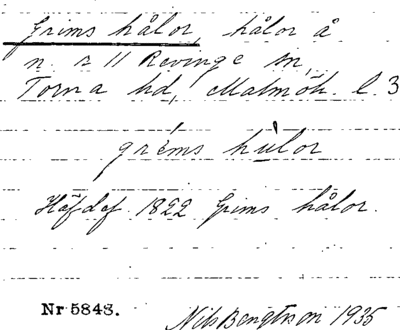 Grims hålor, hålor å
n. r 11 Revinge sn,
Torna hd, Malmöh. l. 3
gréms hùlor
Häfdaf 1822 Grims hålor.
Nr 5843.
Nils Bengtsson 1935